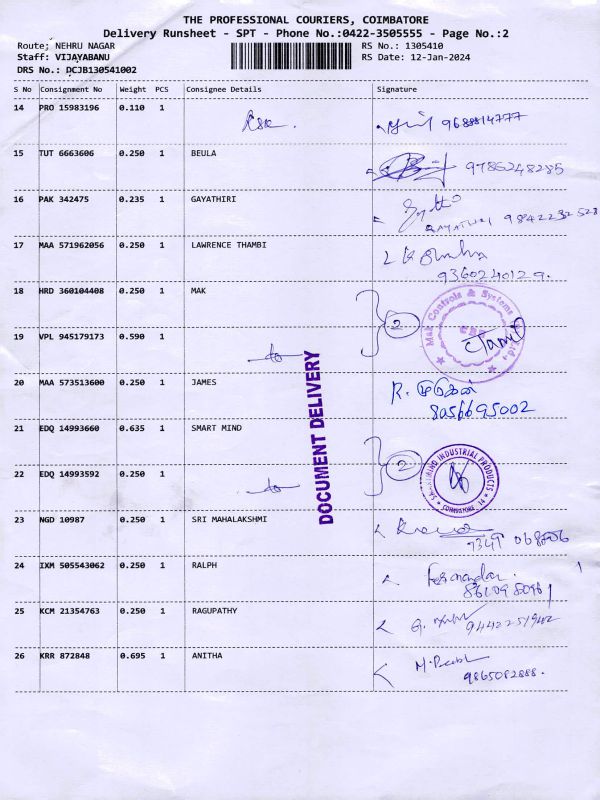 THE PROFESSIONAL COURIERS, COIMBATORE
Delivery Runsheet - SPT - Phone No.:0422-3505555 - Page No.:2
Route; NEHRU NAGAR RS No.: 1305410
Staff: VIJAYABANU RS Date: 12-Jan-2024
DRS No.: DCJB130541002
S No Consignment No Weight PCS Consignee Details Signature
14 PRO 15983196 0.110 1 9688814777
15 TUT 6663606 0.250 1 BEULA 9785248285
16 PAK 342475 0.235 1 GAYATHIRI
GAYATHRI 9842232528
17 MAA 571962056 0.250 1 LAWRENCE THAMBI
9360240129.
18 HRD 360104408 0.250 1 MAK 2
Mak Controls & Systems
19 VPL 945179173 0.590 1 Tamil
20 MAA 573513600 0.250 1 JAMES R. முருகேன்
8056695002
DOCUMENT DELIVERY
21 EDQ 14993660 0.635 1 SMART MIND
22 EDQ 14993592 0.250 1 2
SMART MIND INDUSTRIAL PRODUCTS
COIMBATORE 14
23 NGD 10987 0.250 1 SRI MAHALAKSHMI
24 IXM 505543062 0.250 1 RALPH Fernandar.
25 KCM 21354763 0.250 1 RAGUPATHY 9442251942
26 KRR 872848 0.695 1 ANITHA
9865082888.